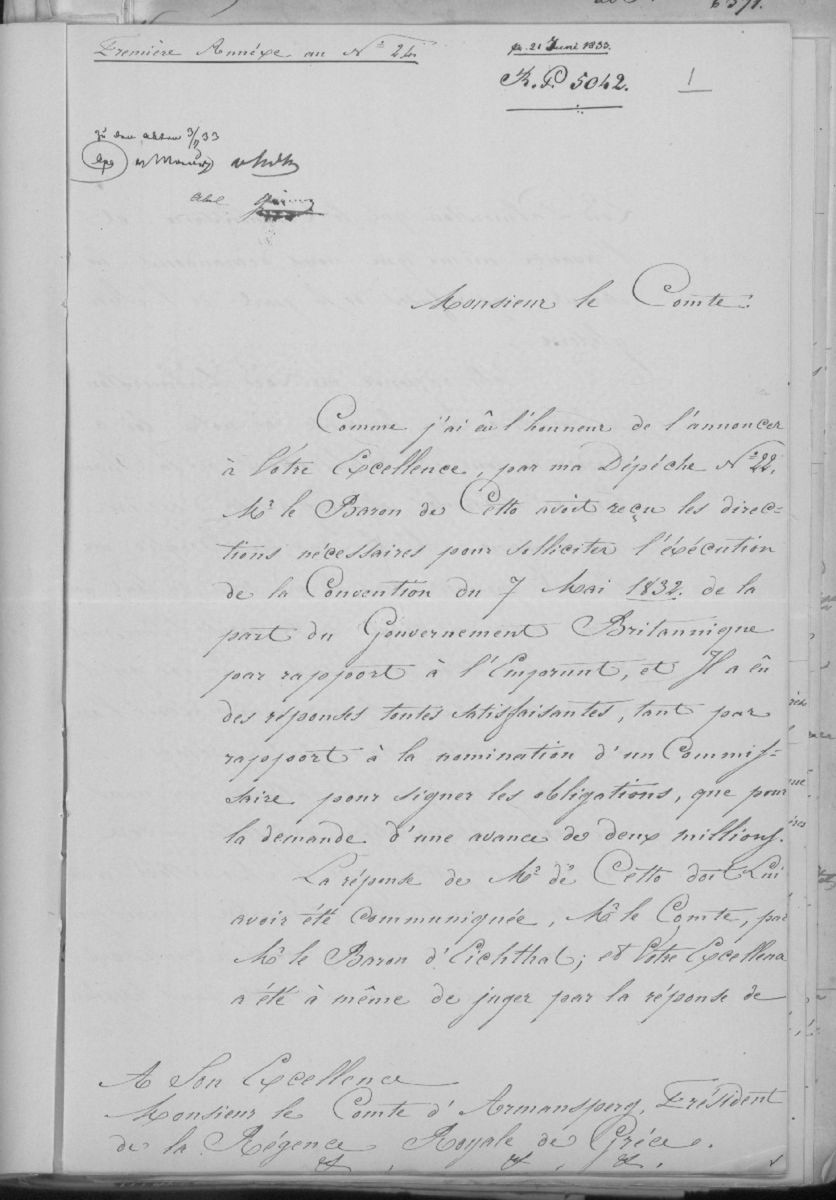 Première Annéxe au Nº 24.
pr. 21 Juni 1833.
K. P. 5042.
1
zu den akten 3/7 33
Abel
Monsieur le Comte.
Comme j'ai êu l'honneur de l'annoncer
à Vôtre Excellence, par ma Dépêche Nº 22.
Mr le Baron de Cetto avoit reçu les direc-
tions nécessaires pour solliciter l'éxécution
de la Convention du 7 Mai 1832. de la
part du Gouvernement Britannique
par rapport à l'Emprunt, et Il a êu
des réponses toutes satisfaisantes, tant par
rapport à la nomination d'un Commis-
saire pour signer les obligations, que pour
la demande d'une avance de deux millions.
La réponse de Mr de Cetto doit Lui
avoir été communiquée, Mr le Comte, par
Mr le Baron d'Eichthal; et Vôtre Excellence
a été à même de juger par la réponse de
A Son Excellence
Monsieur le Comte d'Armansperg, Président
de la Régence Royale de Grèce.
&. &. &.